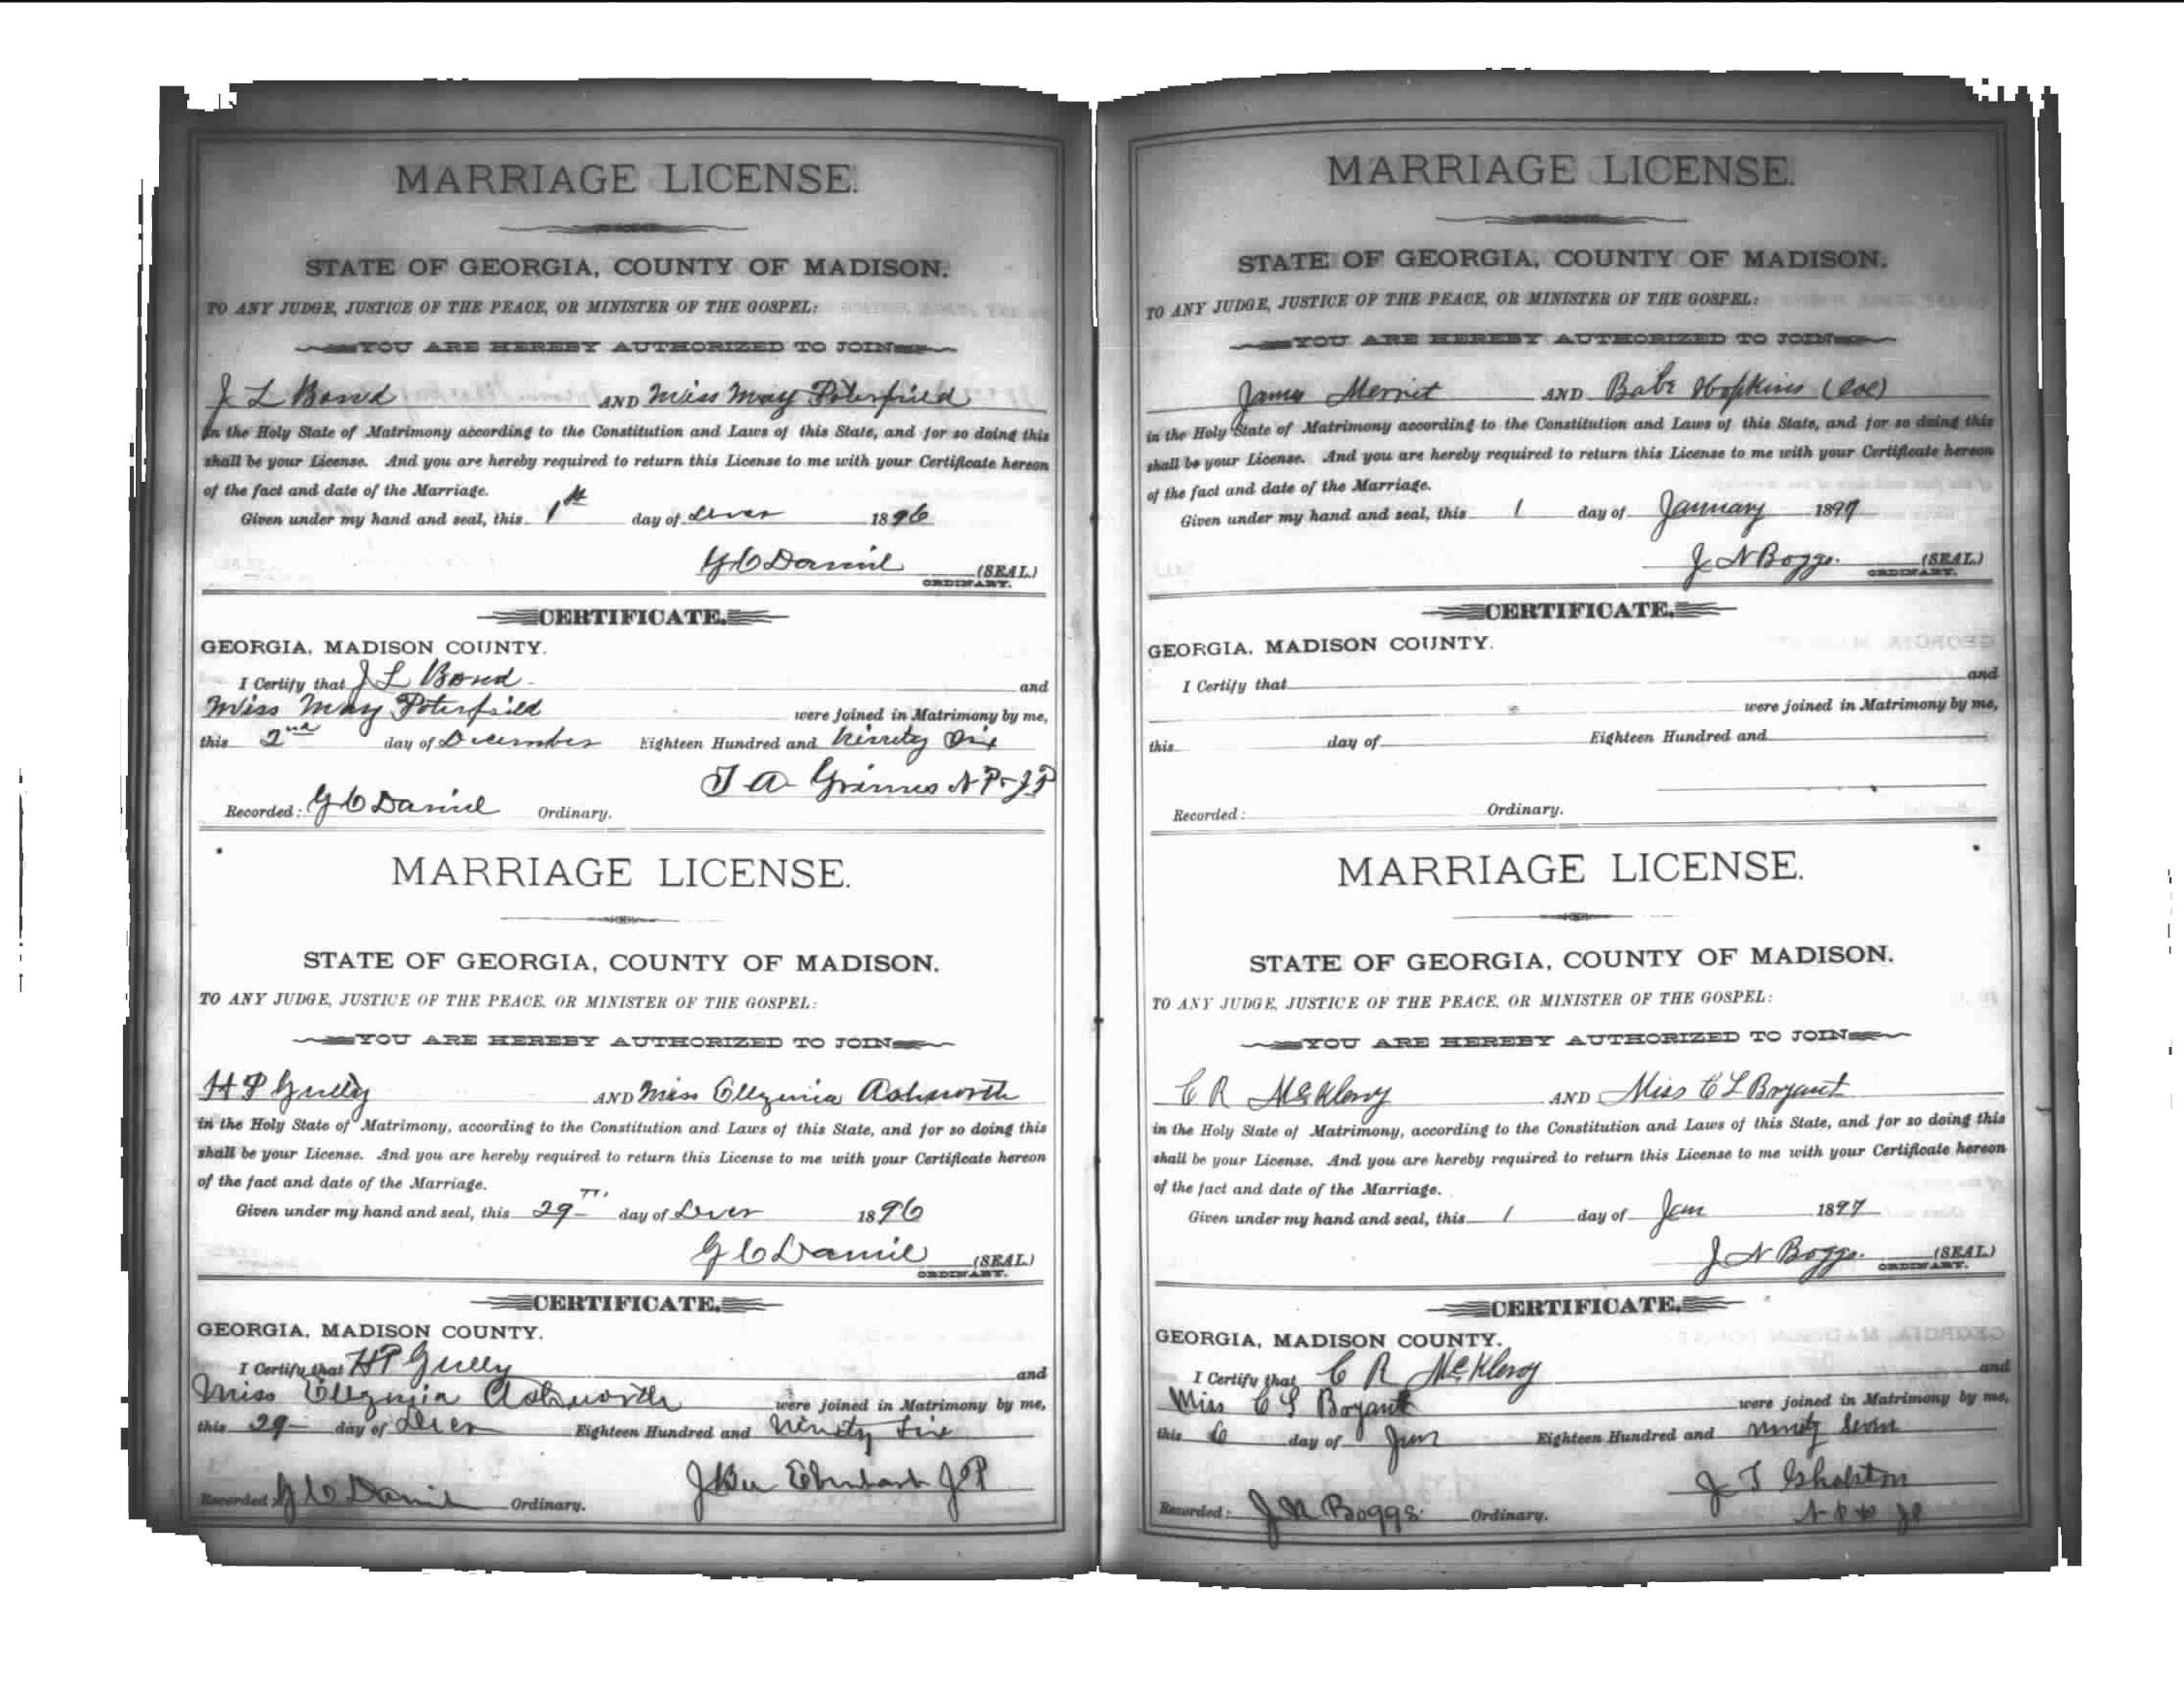 MARRIAGE LICENSE.
STATE OF GEORGIA, COUNTY OF MADISON.
TO ANY JUDGE, JUSTICE OF THE PEACE, OR MINISTER OF THE GOSPEL:
YOU ARE HEREBY AUTHORIZED TO JOIN
J L Bond AND Miss May Poterfield
in the Holy State of Matrimony according to the Constitution and Laws of this State, and for so doing this
shall be your License. And you are hereby required to return this License to me with your Certificate hereon
of the fact and date of the Marriage.
Given under my hand and seal, this 1st day of Decr 1896
G C Daniel (SEAL.)
ORDINARY.
CERTIFICATE.
GEORGIA, MADISON COUNTY.
I Certify that J L Bond and
Miss May Poterfield were joined in Matrimony by me,
this 2nd day of December Eighteen Hundred and Ninety Six
T A Grimes N P & J P
Recorded: G C Daniel Ordinary.
MARRIAGE LICENSE.
STATE OF GEORGIA, COUNTY OF MADISON.
TO ANY JUDGE, JUSTICE OF THE PEACE, OR MINISTER OF THE GOSPEL:
YOU ARE HEREBY AUTHORIZED TO JOIN
H P Gully AND Miss Ellgunia Ashworth
in the Holy State of Matrimony, according to the Constitution and Laws of this State, and for so doing this
shall be your License. And you are hereby required to return this License to me with your Certificate hereon
of the fact and date of the Marriage.
Given under my hand and seal, this 29th day of Decr 1896
G C Daniel (SEAL.)
ORDINARY.
CERTIFICATE.
GEORGIA, MADISON COUNTY.
I Certify that H P Gully and
Miss Ellgunia Ashworth were joined in Matrimony by me,
this 29 day of Decr Eighteen Hundred and Ninety Six
J P
Recorded: G C Daniel Ordinary.
MARRIAGE LICENSE.
STATE OF GEORGIA, COUNTY OF MADISON.
TO ANY JUDGE, JUSTICE OF THE PEACE, OR MINISTER OF THE GOSPEL:
YOU ARE HEREBY AUTHORIZED TO JOIN
James Merrit AND Babe Hopkins (Col)
in the Holy State of Matrimony according to the Constitution and Laws of this State, and for so doing this
shall be your License. And you are hereby required to return this License to me with your Certificate hereon
of the fact and date of the Marriage.
Given under my hand and seal, this 1 day of January 1897
J N Boggs. (SEAL.)
ORDINARY.
CERTIFICATE.
GEORGIA, MADISON COUNTY.
I Certify that and
were joined in Matrimony by me,
this day of Eighteen Hundred and
Recorded: Ordinary.
MARRIAGE LICENSE.
STATE OF GEORGIA, COUNTY OF MADISON.
TO ANY JUDGE, JUSTICE OF THE PEACE, OR MINISTER OF THE GOSPEL:
YOU ARE HEREBY AUTHORIZED TO JOIN
C R McElroy AND Miss C L Bryant
in the Holy State of Matrimony, according to the Constitution and Laws of this State, and for so doing this
shall be your License. And you are hereby required to return this License to me with your Certificate hereon
of the fact and date of the Marriage.
Given under my hand and seal, this 1 day of Jan 1897
J N Boggs. (SEAL.)
ORDINARY.
CERTIFICATE.
GEORGIA, MADISON COUNTY.
I Certify that C R McElroy and
Miss C L Bryant were joined in Matrimony by me,
this 6 day of Jan Eighteen Hundred and ninety seven
J T Gholston
Recorded: J N Boggs. Ordinary. N P & J P